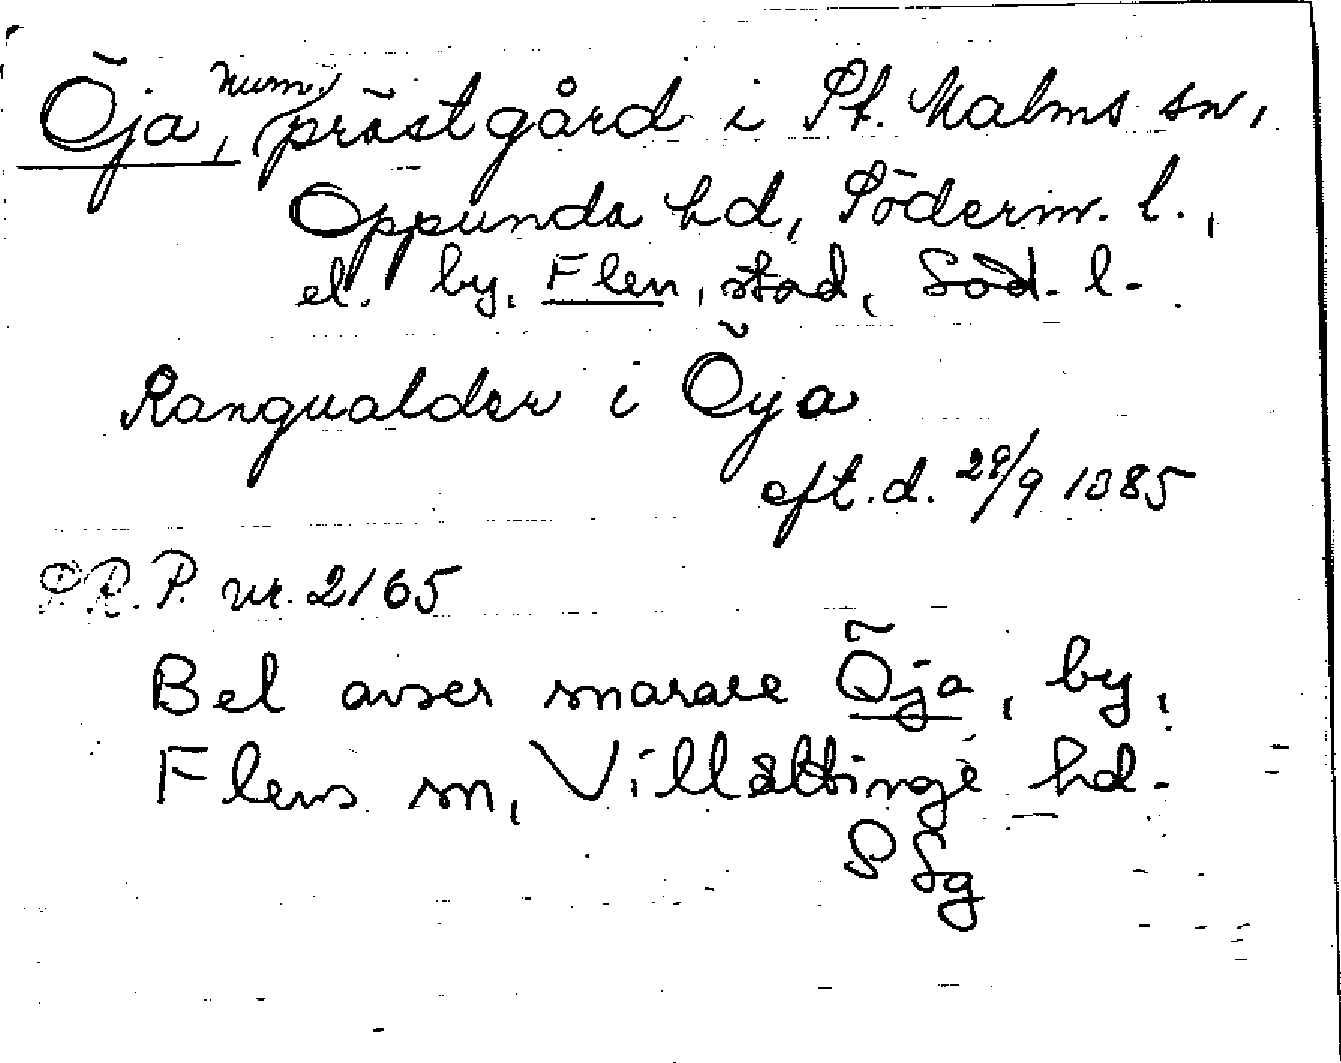 Öja, num. prästgård i St. Malms sn,
Oppunda hd, Söderm. l.,
el. by, Flen, stad, Söd. l.
Rangualder i Öya
eft. d. 29/9 1385
S.R.P. nr. 2165
Bel avser snarare Öja, by,
Flens sn, Villåttinge hd.